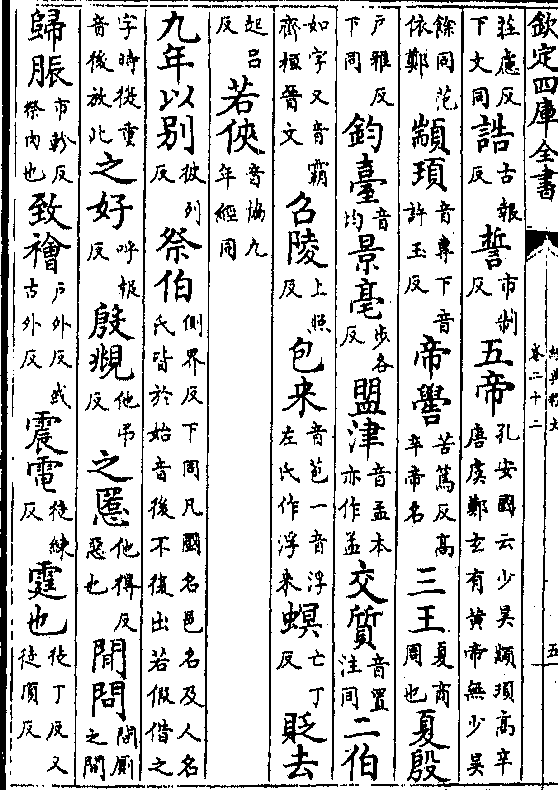 欽定四庫全書
經典釋文 卷二十二 五
莊慮反下文同誥古報反誓市制反五帝孔安國云少昊顓頊高辛唐虞鄭玄有黄帝無少昊
餘同范依鄭顓頊音專下音許玉反帝嚳苦篤反高辛帝名三王夏商周也夏殷
户雅反下同鈞臺音均景亳步各反盟津音孟本亦作孟交質音置注同二伯
如字又音霸齊桓晉文召陵上照反包来音苞一音浮左氏作浮来螟亡丁反貶去
起吕反若俠音協九年經同
九年以别彼列反祭伯側界反下同凡國名邑名及人名氏皆於始音後不復出若假借之
字時從重音後放此之好呼報反殷覜他吊反之慝他得反惡也間問間厠之間
歸脤市軫反祭肉也致禬户外反或古外反震電徒練反霆也徒丁反又徒頂反